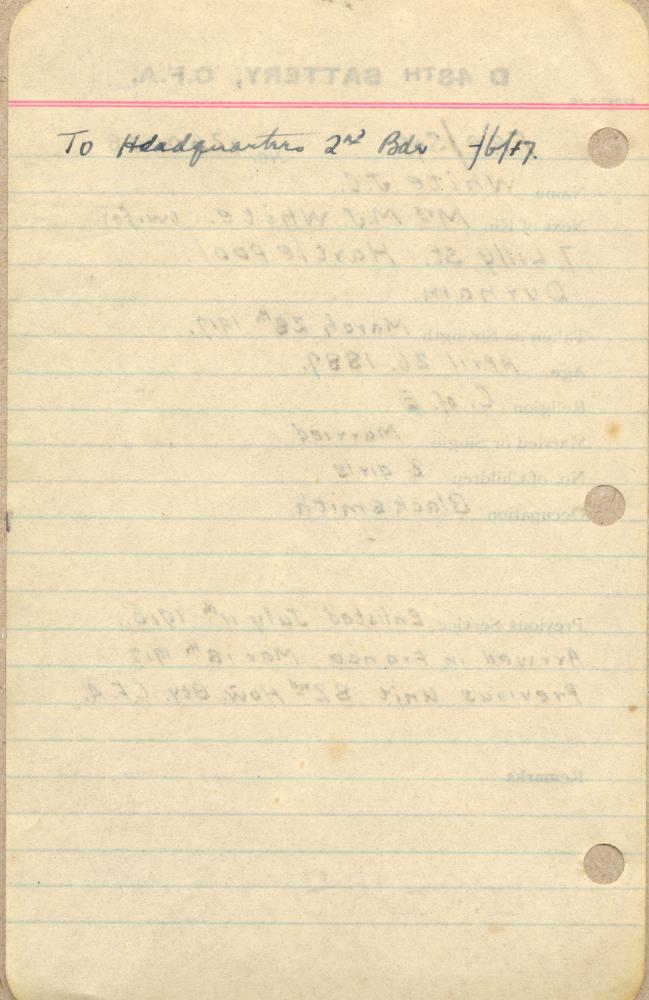 To Headquarters 2nd Bde 7/6/17.
D 48TH BATTERY, C.F.A.
Name White J.C.
Next of Kin Mrs M.J. White. wife
7 Lilly St. Hartlepool.
Durham.
Taken on Strength March 28th 1917.
Age April 26. 1889.
Religion C. of E
Married or Single Married
No. of Children 2 girls
Occupation Blacksmith
Previous Service Enlisted July 11th 1916.
Arrived in France Mar 18th 1917
Previous Unit 82nd How. Bty. C.F.A.
Remarks